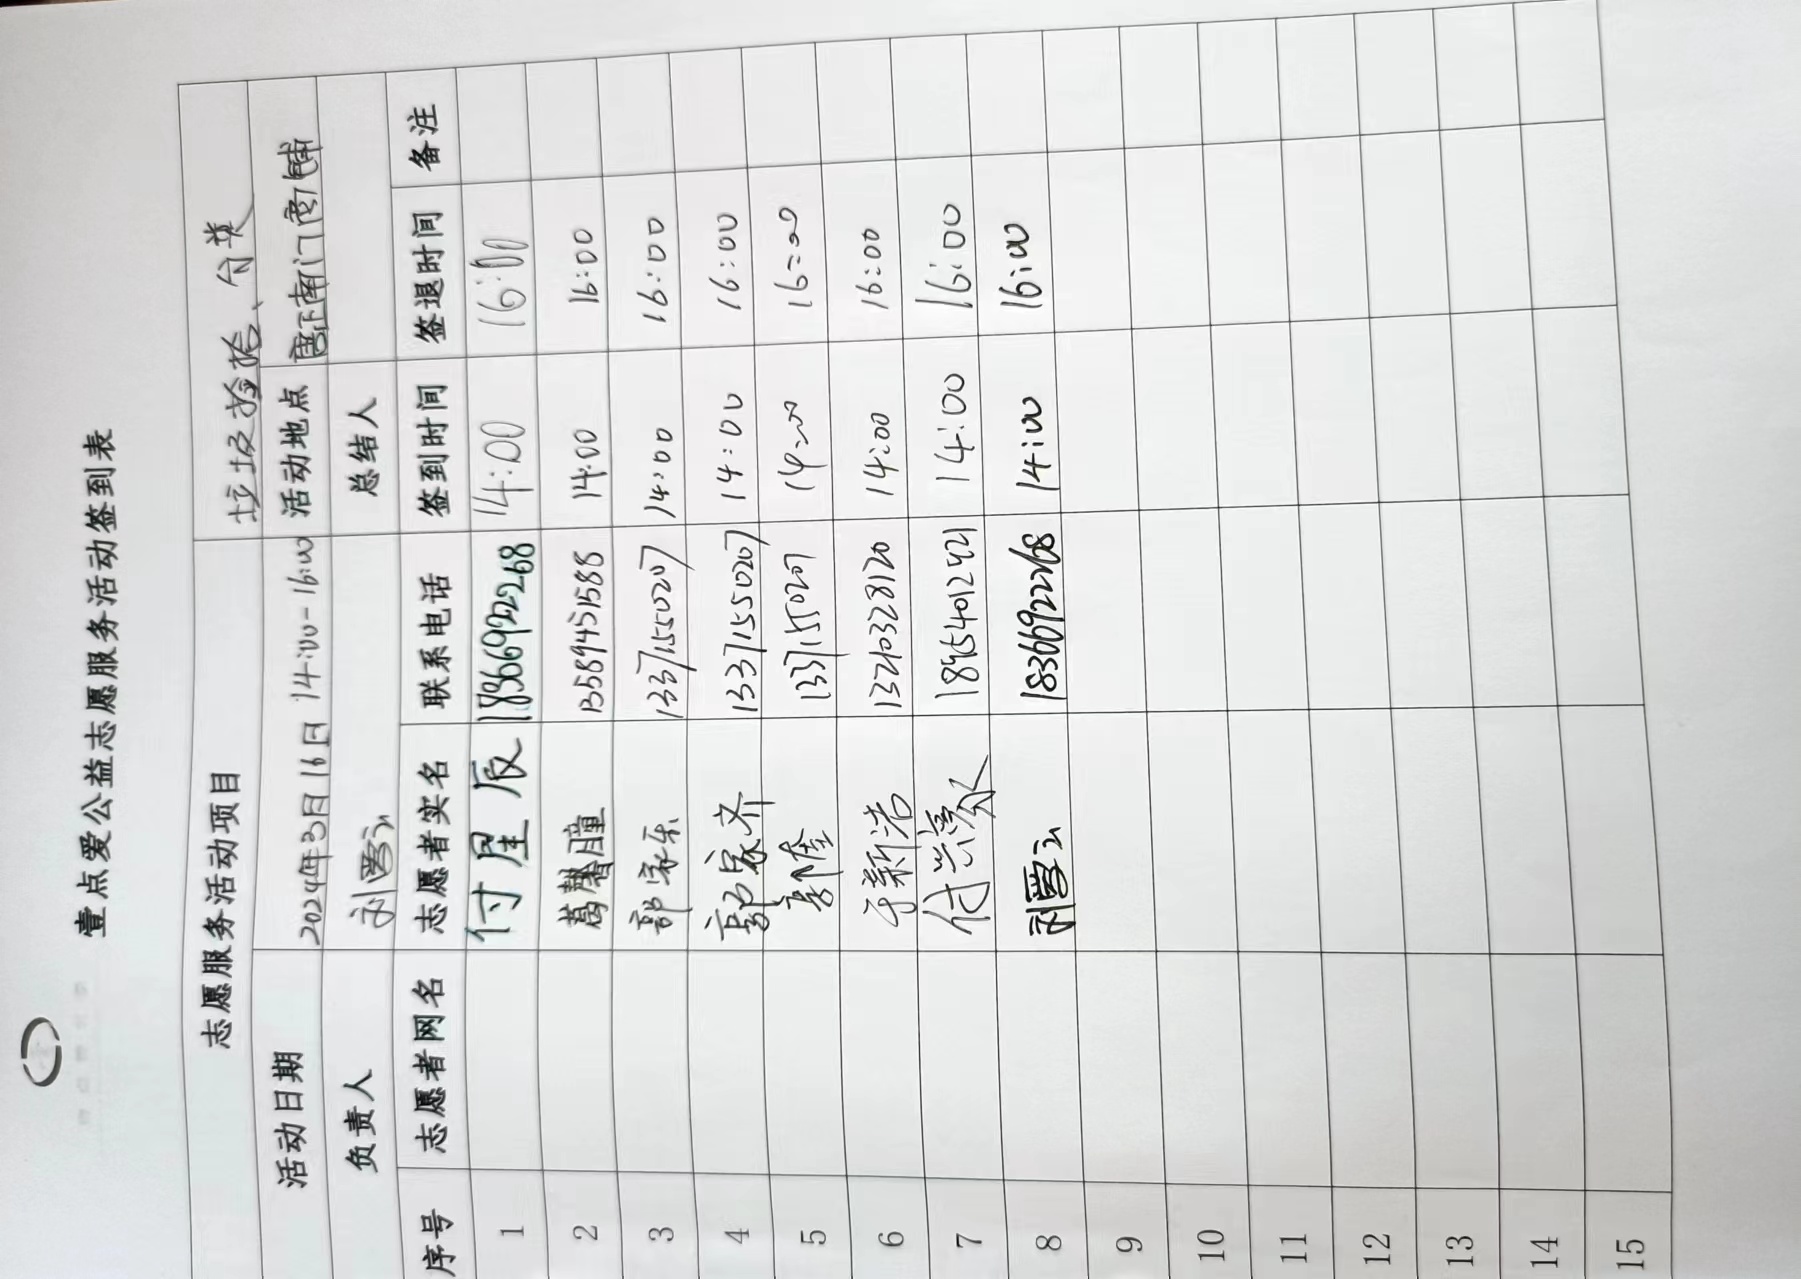 壹点爱公益志愿服务活动签到表
志愿服务活动项目 垃圾捡拾、分类
活动日期 2024年3月16日 14:00-16:00 活动地点 南门商铺
负责人 总结人
序号 志愿者网名 志愿者实名 联系电话 签到时间 签退时间 备注
1 付星辰 18366922268 14:00 16:00
2 葛馨瞳 13589451588 14:00 16:00
3 郭家乐 13371550207 14:00 16:00
4 郭家齐 13371550207 14:00 16:00
5 13371550207 14:00 16:00
6 于新浩 13210328120 14:00 16:00
7 付兴 14:00 16:00
8 18366922268 14:00 16:00
9
10
11
12
13
14
15